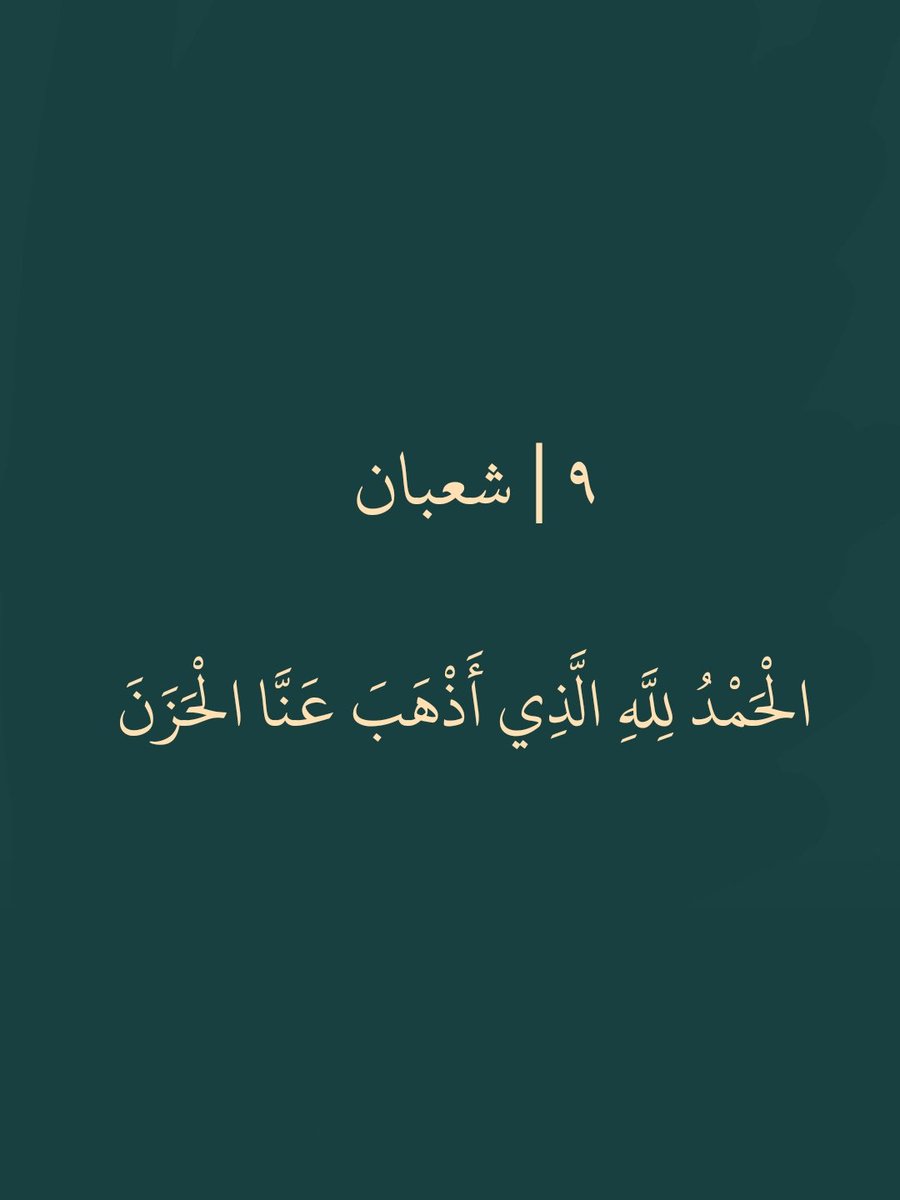 ٩ | شعبان
الْحَمْدُ لِلَّهِ الَّذِي أَذْهَبَ عَنَّا الْحَزَنَ